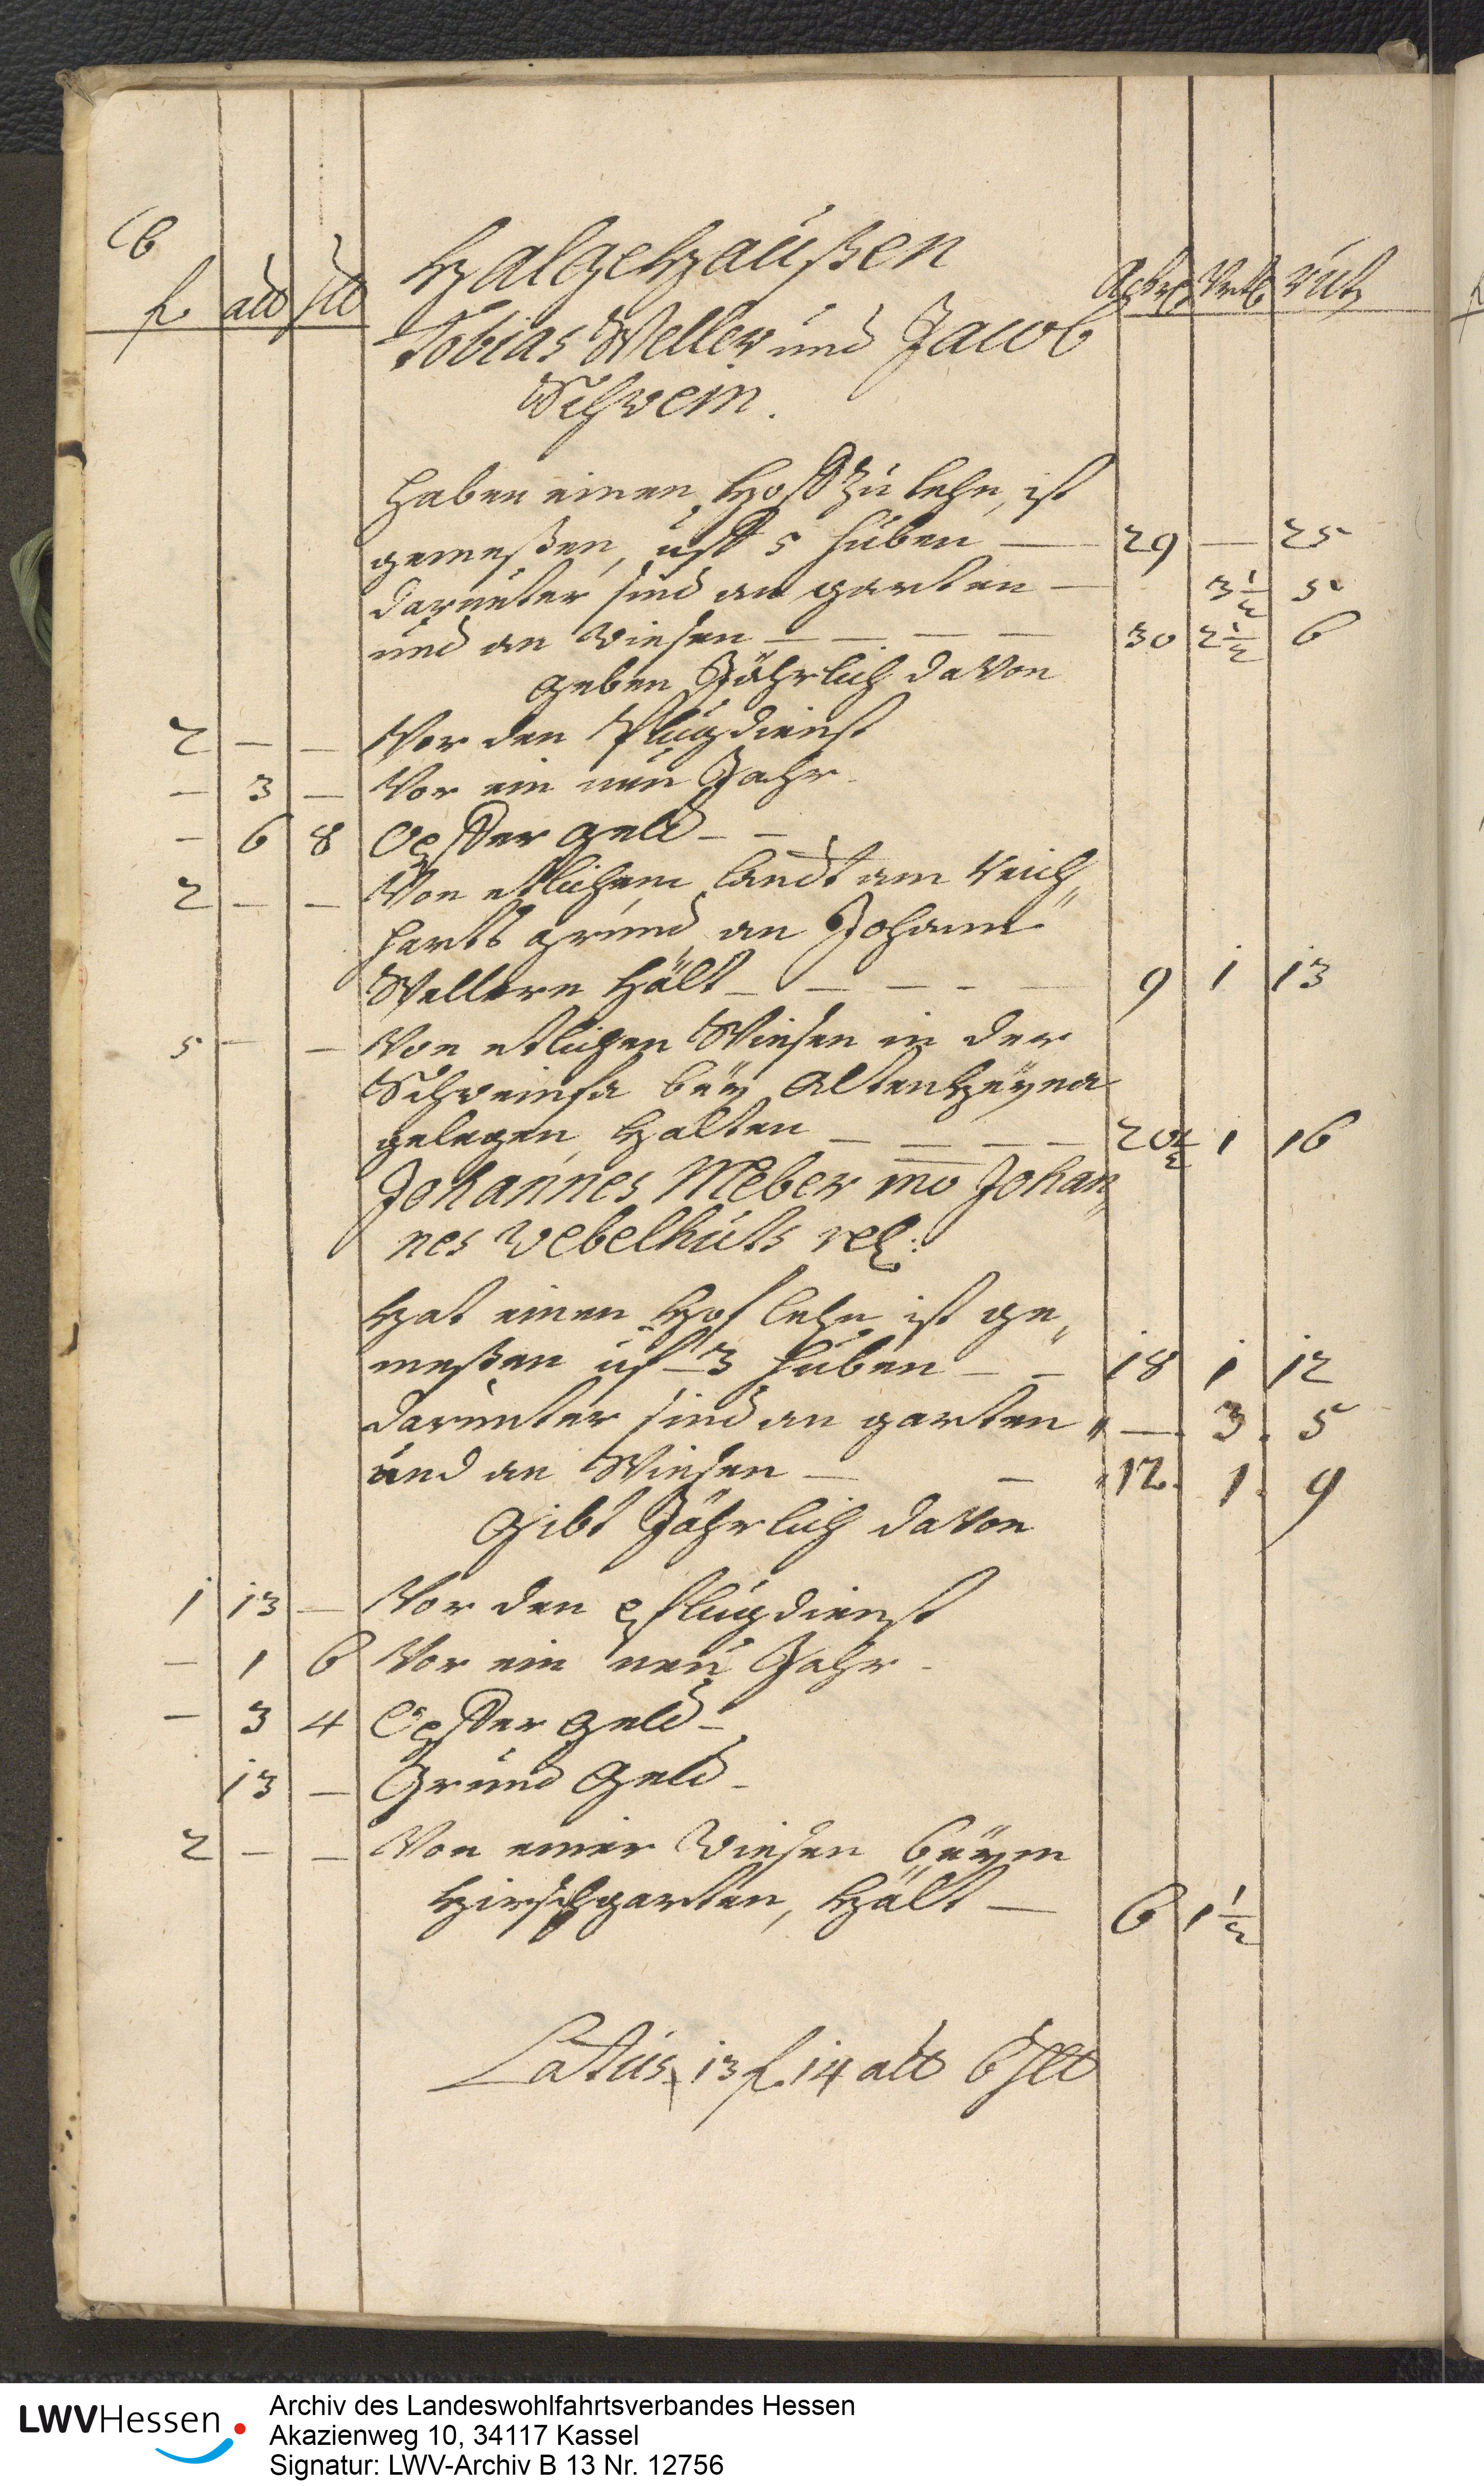 6
fl. alb hlr Halgehaußen Acker Vrtl. rut
Tobias Weller und Jacob
Schwein.
Haben einen Hoff Zu lehn, ist
gemeßen, uff 5 huben — 29 — 25
darunter sind an garten — 3½ 5
und an Wiesen — — — — 30 2½ 6
Geben Jährlich davon
2 — — Vor den Pflugdienst
— 3 — Vor ein neu Jahr
— 6 8 Opffer geld
2 — — Von etlichem landt am Reich„
harts grund, an Johann
Wellern hält — — — — 9 1 13
5 — — Von etlichen Wiesen in der
Schweinfa bey Altenheyna
gelegen, halten — — — — 20½ 1 16
Johannes Weber mo Johan„
nes Vebelhuts rel:
Hat einen Hof lehn ist ge„
meßen uf 3 huben — — 18 1 12
darunter sind an garten — 3. 5
und an Wiesen — — 12. 1. 9
Gibt Jährlich davon
1 13 — Vor den Pflugdienst
— 1 6 Vor ein neu Jahr
— 3 4 Opffer geld
13 — Grund Geld
2 — — Von einer Wiesen beym
Hirschgarten, hält — 6 1½
Latus 13 fl. 14 alb 6 hlr
LWVHessen
Archiv des Landeswohlfahrtsverbandes Hessen
Akazienweg 10, 34117 Kassel
Signatur: LWV-Archiv B 13 Nr. 12756